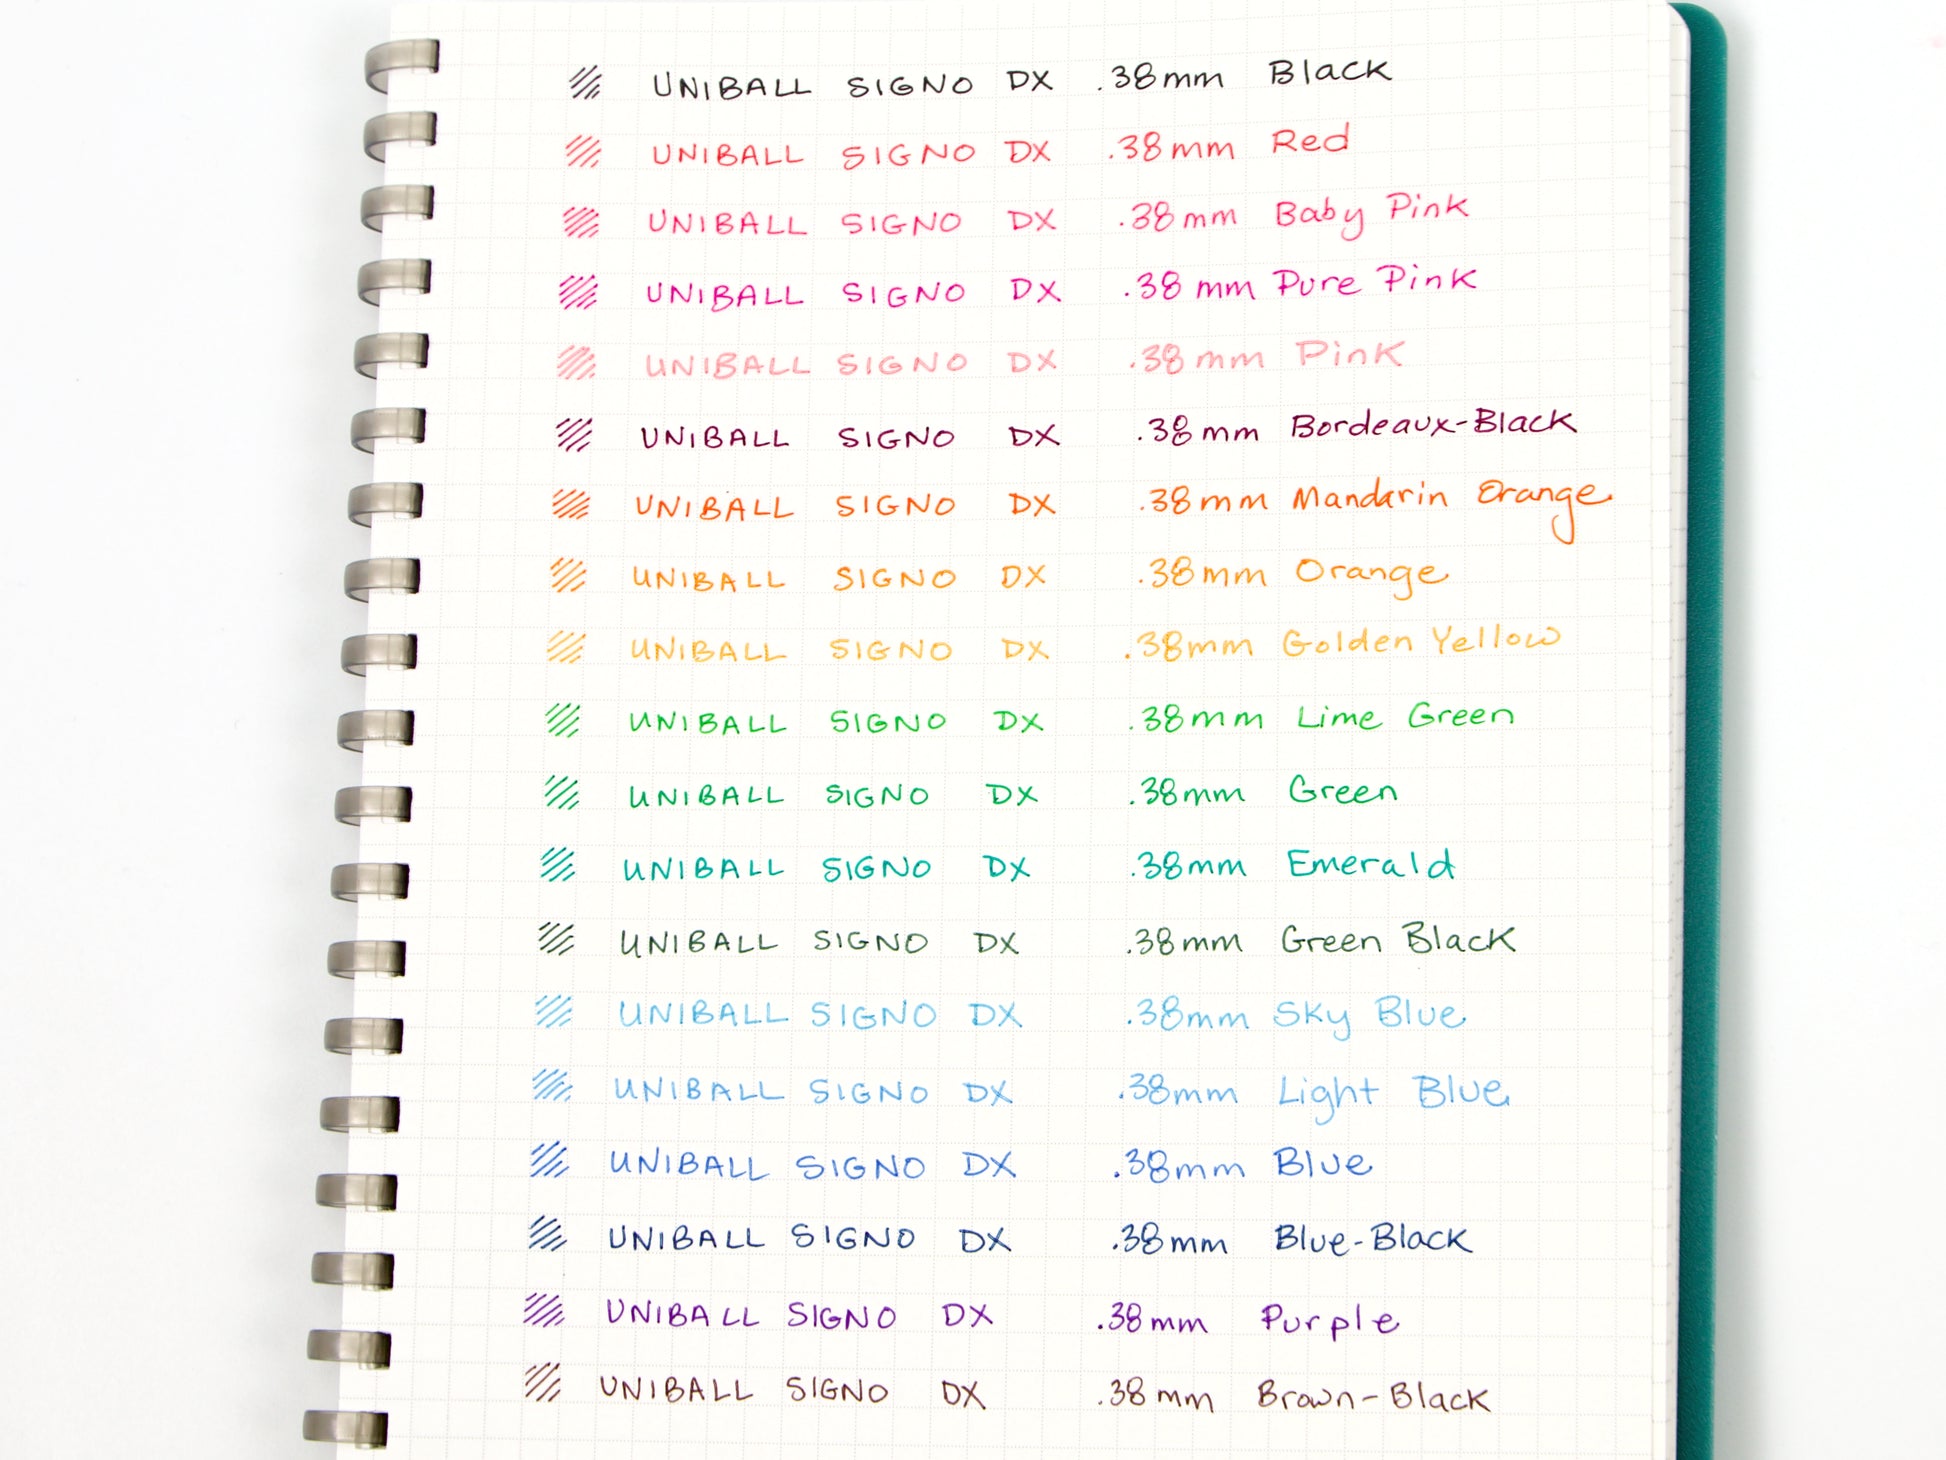 UNIBALL SIGNO DX .38mm Black
UNIBALL SIGNO DX .38mm Red
UNIBALL SIGNO DX .38mm Baby Pink
UNIBALL SIGNO DX .38mm Pure Pink
UNIBALL SIGNO DX .38mm Pink
UNIBALL SIGNO DX .38mm Bordeaux-Black
UNIBALL SIGNO DX .38mm Mandarin Orange
UNIBALL SIGNO DX .38mm Orange
UNIBALL SIGNO DX .38mm Golden Yellow
UNIBALL SIGNO DX .38mm Lime Green
UNIBALL SIGNO DX .38mm Green
UNIBALL SIGNO DX .38mm Emerald
UNIBALL SIGNO DX .38mm Green Black
UNIBALL SIGNO DX .38mm Sky Blue
UNIBALL SIGNO DX .38mm Light Blue
UNIBALL SIGNO DX .38mm Blue
UNIBALL SIGNO DX .38mm Blue-Black
UNIBALL SIGNO DX .38mm Purple
UNIBALL SIGNO DX .38mm Brown-Black